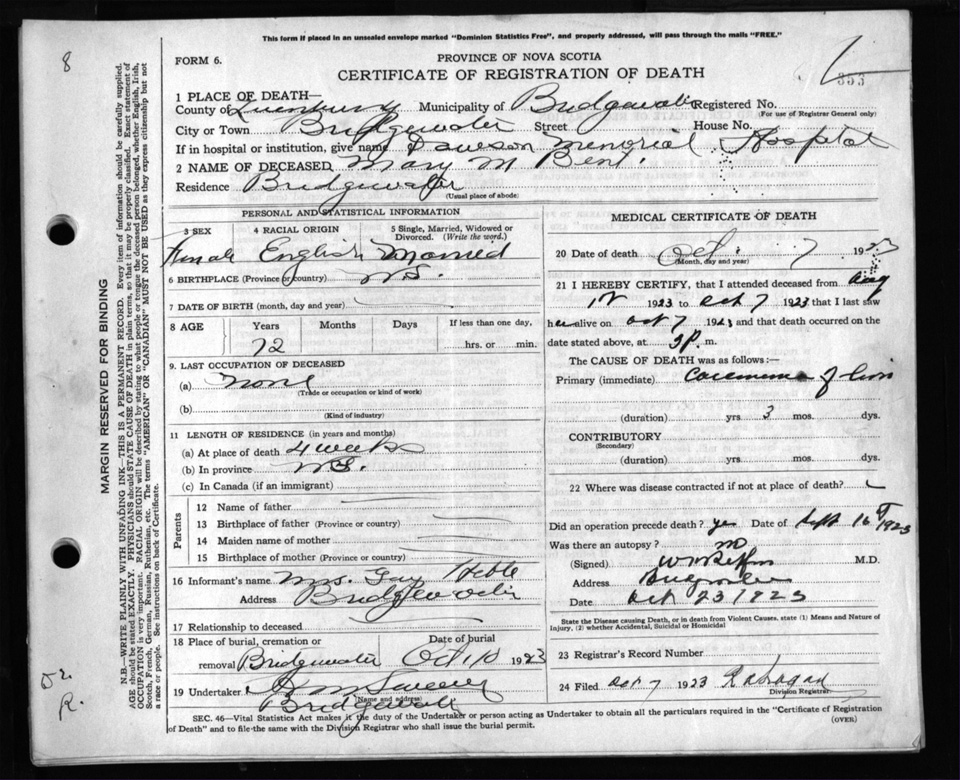 This form if placed in an unsealed envelope marked "Dominion Statistics Free", and properly addressed, will pass through the mails "FREE."
8
FORM 6.
PROVINCE OF NOVA SCOTIA
353
CERTIFICATE OF REGISTRATION OF DEATH
1 PLACE OF DEATH—
County of Lunenburg Municipality of Bridgewater Registered No.
(For use of Registrar General only)
City or Town Bridgewater Street House No.
If in hospital or institution, give name Dawson Memorial Hospital
2 NAME OF DECEASED Mary M Bent.
Residence Bridgewater
(Usual place of abode)
PERSONAL AND STATISTICAL INFORMATION
3 SEX 4 RACIAL ORIGIN 5 Single, Married, Widowed or Divorced. (Write the word.)
Female English Married
6 BIRTHPLACE (Province or country) N.S.
7 DATE OF BIRTH (month, day and year)
8 AGE Years Months Days If less than one day,
72 hrs. or min.
9. LAST OCCUPATION OF DECEASED
(a) None
(Trade or occupation or kind of work)
(b)
(Kind of industry)
11 LENGTH OF RESIDENCE (in years and months)
(a) At place of death 4 weeks
(b) In province N.S.
(c) In Canada (if an immigrant)
Parents
12 Name of father
13 Birthplace of father (Province or country)
14 Maiden name of mother
15 Birthplace of mother (Province or country)
16 Informant's name Mrs. Guy Hebb
Address Bridgewater
17 Relationship to deceased
18 Place of burial, cremation or Date of burial
removal Bridgewater Oct. 10 1923
19 Undertaker Sweeney
(Name and address)
Bridgewater
MEDICAL CERTIFICATE OF DEATH
20 Date of death Oct. 7 1923
(Month, day and year)
21 I HEREBY CERTIFY, that I attended deceased from Aug
1923 to Oct 7 1923 that I last saw
her alive on Oct 7 1923 and that death occurred on the
date stated above, at 3 P. m.
The CAUSE OF DEATH was as follows:—
Primary (immediate) Carcinoma of
(duration) yrs 3 mos. dys.
CONTRIBUTORY
(Secondary)
(duration) yrs. mos. dys.
22 Where was disease contracted if not at place of death?
Did an operation precede death? yes Date of Sept 16 1923
Was there an autopsy? no
(Signed) M.D.
Address Bridgewater
Date Oct 23 1923
State the Disease causing Death, or in death from Violent Causes, state (1) Means and Nature of Injury, (2) whether Accidental, Suicidal or Homicidal
23 Registrar's Record Number
24 Filed Oct 7 1923
Division Registrar
SEC. 46—Vital Statistics Act makes it the duty of the Undertaker or person acting as Undertaker to obtain all the particulars required in the "Certificate of Registration
of Death" and to file the same with the Division Registrar who shall issue the burial permit.
(OVER)
MARGIN RESERVED FOR BINDING
N.B.—WRITE PLAINLY WITH UNFADING INK—THIS IS A PERMANENT RECORD. Every item of information should be carefully supplied.
AGE should be stated EXACTLY. PHYSICIANS should STATE CAUSE OF DEATH in plain terms, so that it may be properly classified. Exact statement of
OCCUPATION is very important. RACIAL ORIGIN will be described by stating to what people or tongue the deceased person belonged, whether English, Irish,
Scotch, French, German, Russian, Ruthenian, etc. The terms "AMERICAN" OR "CANADIAN" MUST NOT BE USED as they express citizenship but not
a race or people. See instructions on back of Certificate.
52
R.